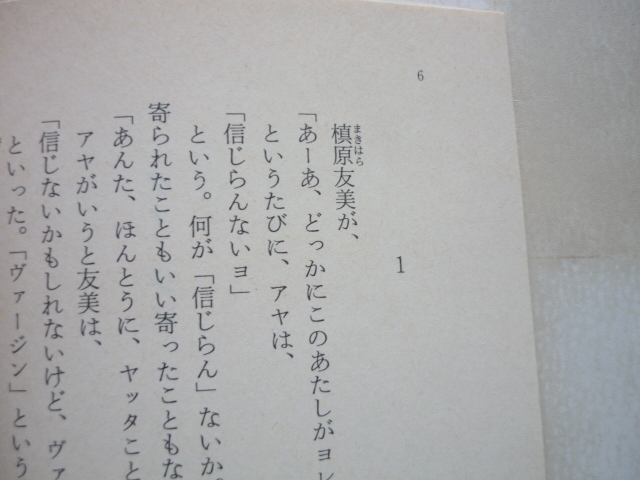 6
1
槙原友美が、
まきはら
「あーあ、どっかにこのあたしがヨレ
というたびに、アヤは、
「信じらんないヨ」
という。何が「信じらん」ないか。
寄られたこともいい寄ったこともな
「あんた、ほんとうに、ヤッタこと
アヤがいうと友美は、
「信じないかもしれないけど、ヴァ
といった。「ヴァージン」という